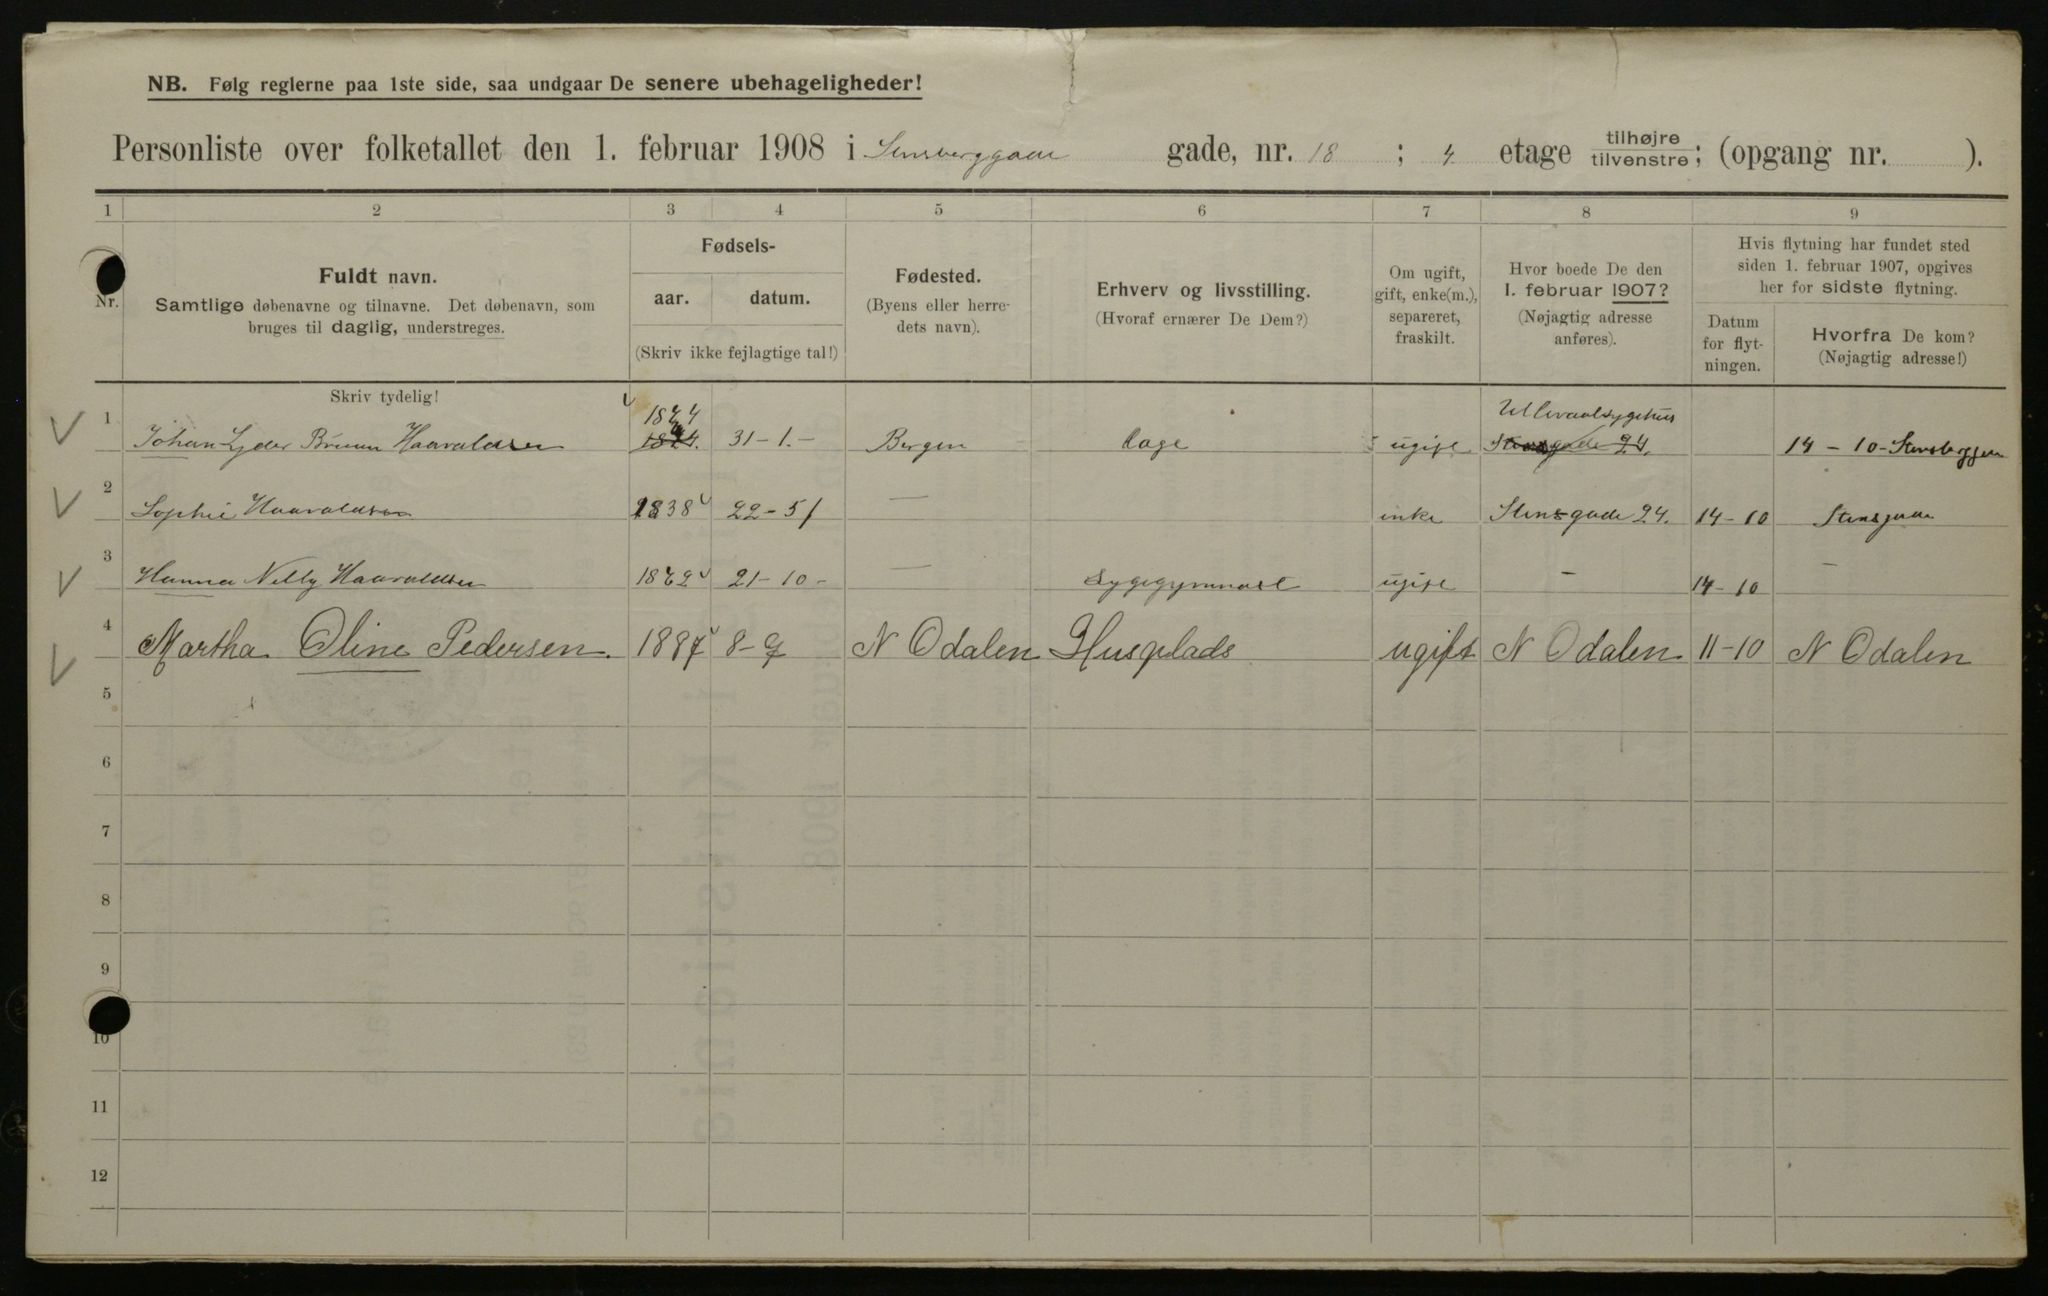 NB. Følg reglerne paa 1ste side, saa undgaar De senere ubehageligheder!
Personliste over folketallet den 1. februar 1908 i Stensberggade gade, nr. 18 ; 4 etage tilhøjre tilvenstre; (opgang nr. ).
1 2 3 4 5 6 7 8 9
Nr.
Fuldt navn.
Samtlige døbenavne og tilnavne. Det døbenavn, som
bruges til daglig, understreges.
Fødsels-
aar. datum.
(Skriv ikke fejlagtige tal!)
Fødested.
(Byens eller herre-
dets navn).
Erhverv og livsstilling.
(Hvoraf ernærer De Dem?)
Om ugift,
gift, enke(m.),
separeret,
fraskilt.
Hvor boede De den
1. februar 1907?
(Nøjagtig adresse
anføres).
Hvis flytning har fundet sted
siden 1. februar 1907, opgives
her for sidste flytning.
Datum
for flyt-
ningen.
Hvorfra De kom?
(Nøjagtig adresse!)
Skriv tydelig!
1 Johan Lyder Bruun Haavaldsen 1874 31-1.- Bergen Læge ugift Ullevaalsygehus Stensgade 24. 14 - 10 - Stensberggade
2 Sophie Haavaldsen 1838 22-5 — enke Stensgade 24. 14-10 Stensgade
3 Hanna Nelly Haavaldsen 1872 21-10- — Sygegymnast ugift - 14-10 -
4 Martha Oline Pedersen. 1887 8-9 N Odalen Husplads ugift N Odalen 11-10 N Odalen
5
6
7
8
9
10
11
12